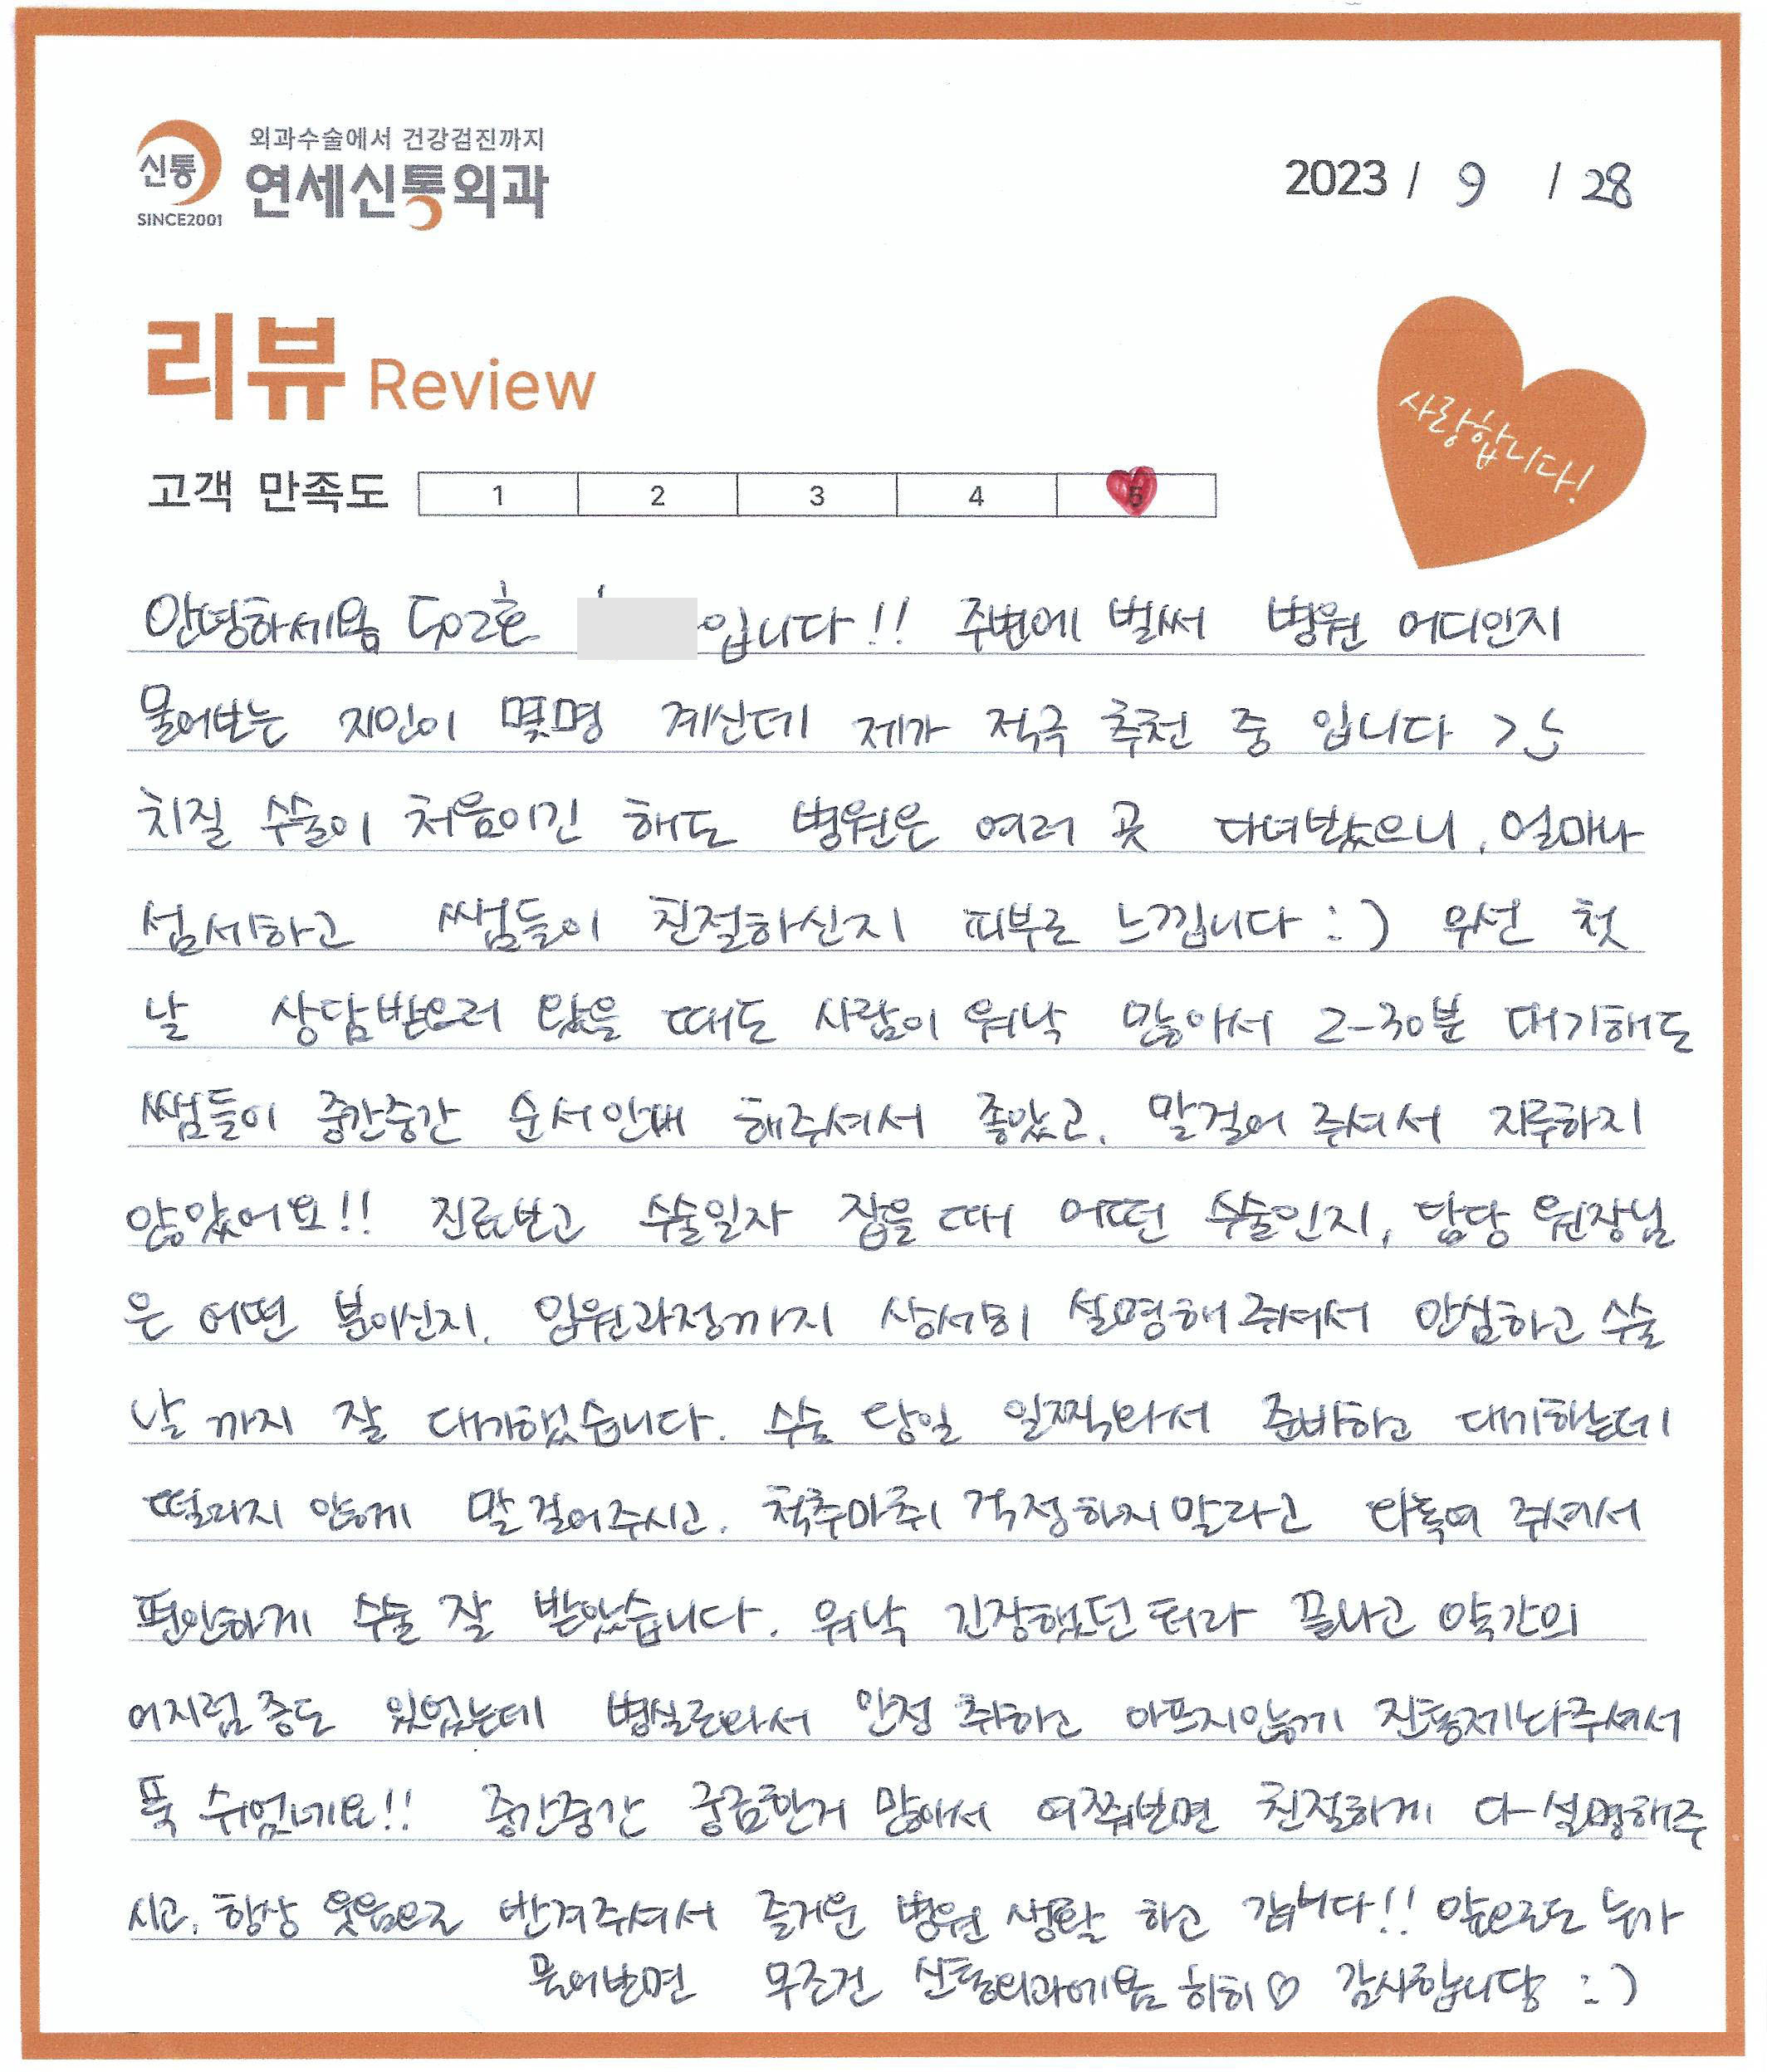 외과수술에서 건강검진까지
신통
연세신통외과
SINCE2001
2023 / 9 / 28
리뷰 Review
사랑합니다!
고객 만족도 1 2 3 4 5
안녕하세요옹 502호 입니다!! 주변에 벌써 병원 어디인지
물어보는 지인이 몇명 계신데 제가 적극 추천 중 입니다 >_<
치질 수술이 처음이긴 해도 병원은 여러 곳 다녀봤으니, 얼마나
섬세하고 쌤들이 친절하신지 피부로 느낍니다 :) 우선 첫
날 상담받으러 왔을 때도 사람이 워낙 많아서 2-30분 대기해도
쌤들이 중간중간 순서안내 해주셔서 좋았고, 말걸어 주셔서 지루하지
않았어요!! 진료보고 수술일자 잡을 때 어떤 수술인지, 담당 원장님
은 어떤 분이신지, 입원과정까지 상세히 설명해 주셔서 안심하고 수술
날 까지 잘 대기했습니다. 수술 당일 일찍와서 준비하고 대기하는데
떨리지 않게 말 걸어주시고, 척추마취 걱정하지말라고 다독여 주셔서
편안하게 수술 잘 받았습니다. 워낙 긴장했던 터라 끝나고 약간의
어지럼증도 있었는데 병실로와서 안정 취하고 아프지않게 진통제놔주셔서
푹 쉬었네요!! 중간중간 궁금한거 많아서 여쭤보면 친절하게 다-설명해주
시고, 항상 웃음으로 반겨주셔서 즐거운 병원 생활 하고 갑니다!! 앞으로도 누가
물어보면 무조건 신통외과에요옹 히히♡ 감사합니당 :)